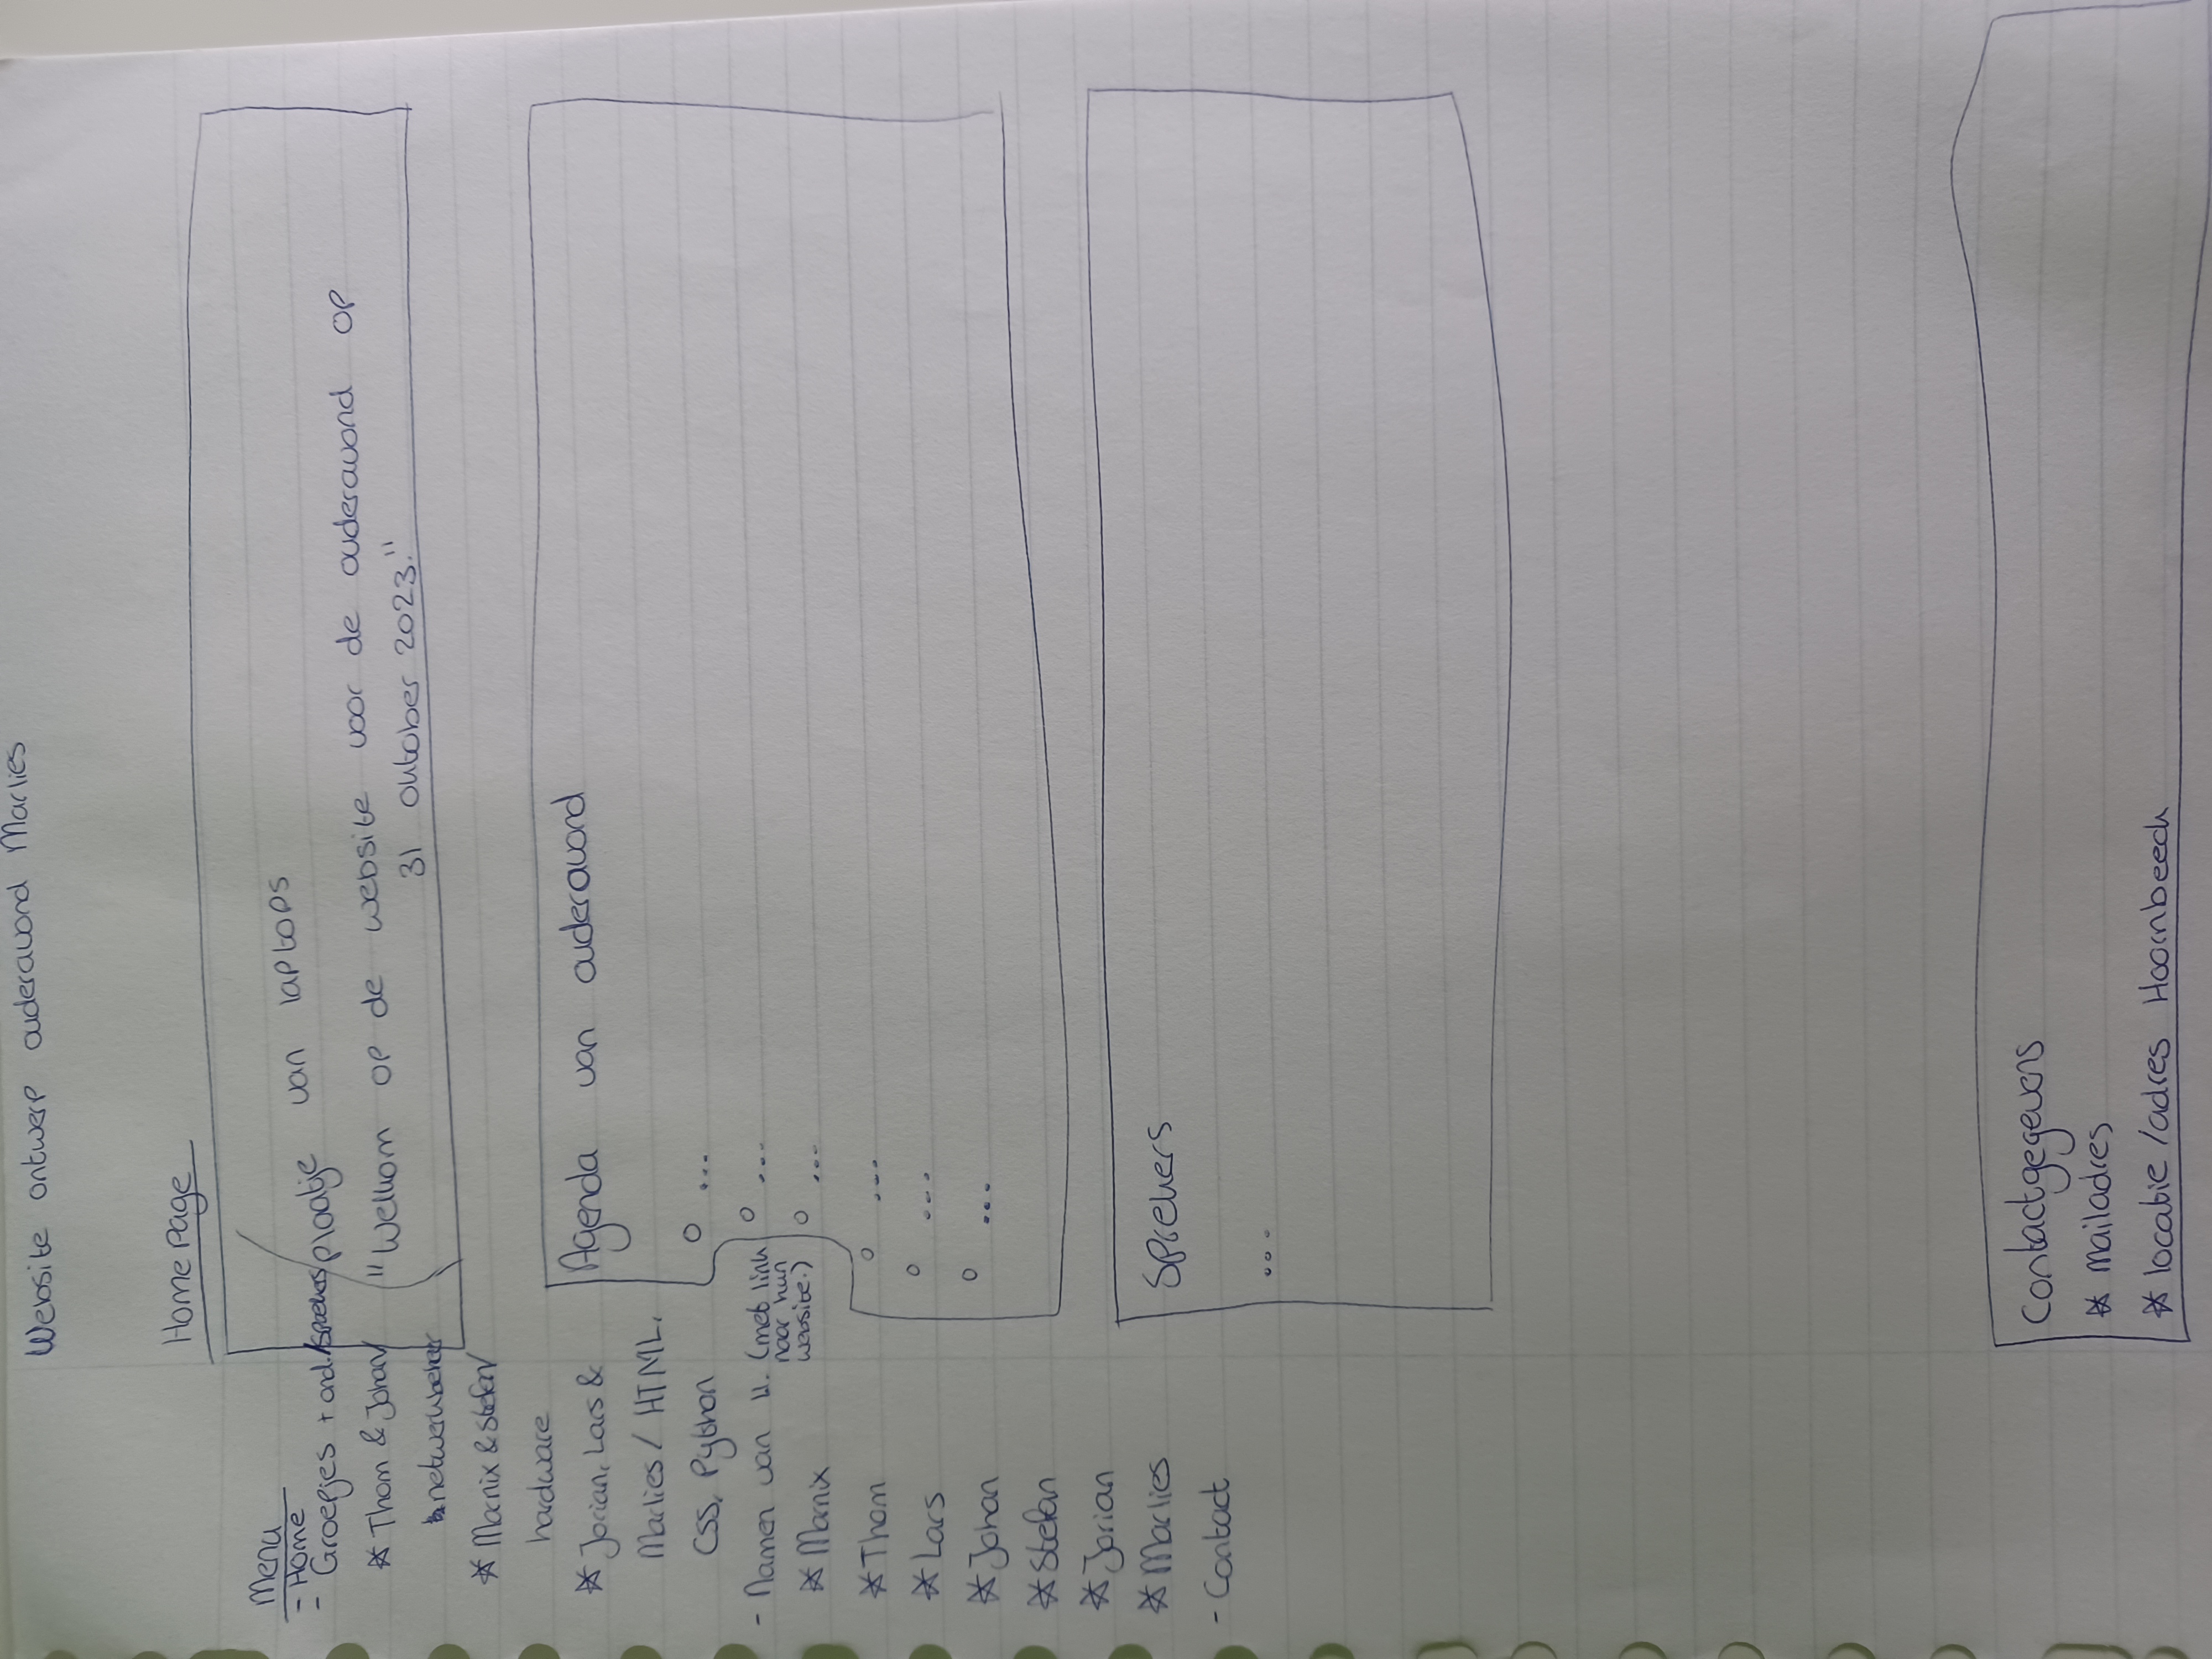 Website ontwerp ouderavond Marlies
Home Page
Menu
- Home
- Groepjes + ond./sprekers
* Thom & Johan/
netwerkbeheer
* Marnix & Stefan/
hardware
* Jorian, Lars &
Marlies / HTML,
CSS, Python
- Namen van ll. (met link
naar hun
website.)
* Marnix
* Thom
* Lars
* Johan
* Stefan
* Jorian
* Marlies
- Contact
plaatje van laptops
"Welkom op de website voor de ouderavond op
31 oktober 2023."
Agenda van ouderavond
o ...
o ...
o ...
o ...
o ...
o ...
Sprekers
...
Contactgegevens
* mailadres
* locatie /adres Hoornbeeck